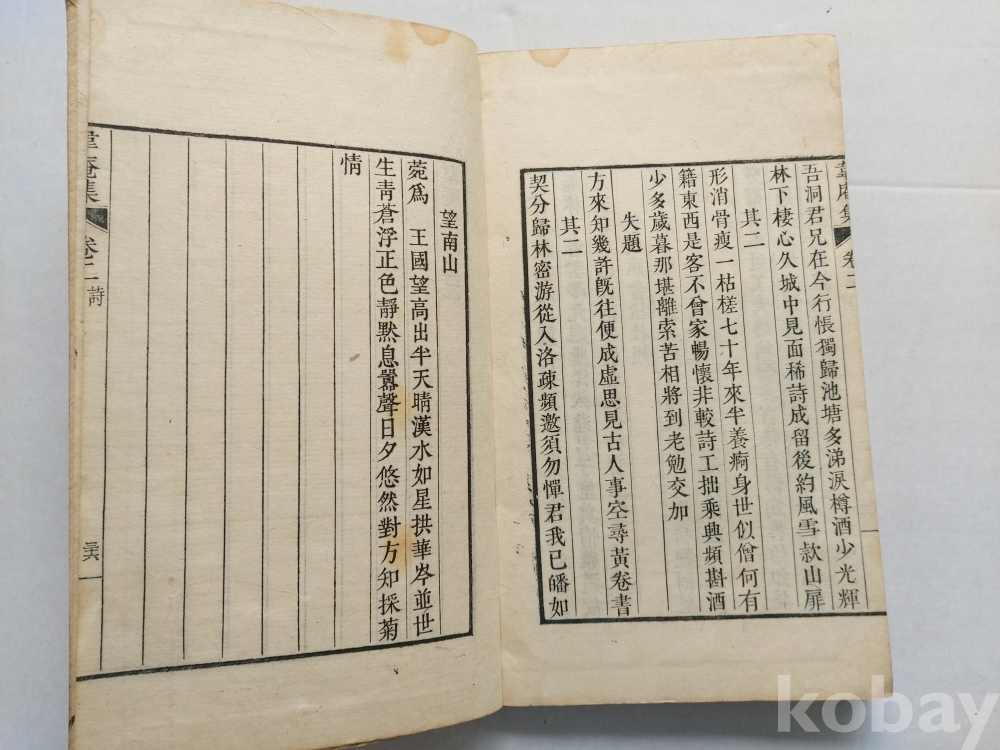 韋庵集 卷二
吾洞君兄在今行悵獨歸池塘多涕淚樽酒少光輝
林下棲心久城中見面稀詩成留後約風雪款山扉
其二
形消骨瘦一枯槎七十年來半養痾身世似僧何有
籍東西是客不曾家暢懷非較詩工拙乘興頻斟酒
少多歲暮那堪離索苦相將到老勉交加
失題
方來知幾許旣往便成虛思見古人事空尋黃卷書
其二
契分歸林密游從入洛疎頻邀須勿憚君我已皤如
望南山
菀爲 王國望高出半天晴漢水如星拱華岑並世
生靑蒼浮正色靜默息囂聲日夕悠然對方知採菊
情
韋庵集 卷二 詩 三六
kobay